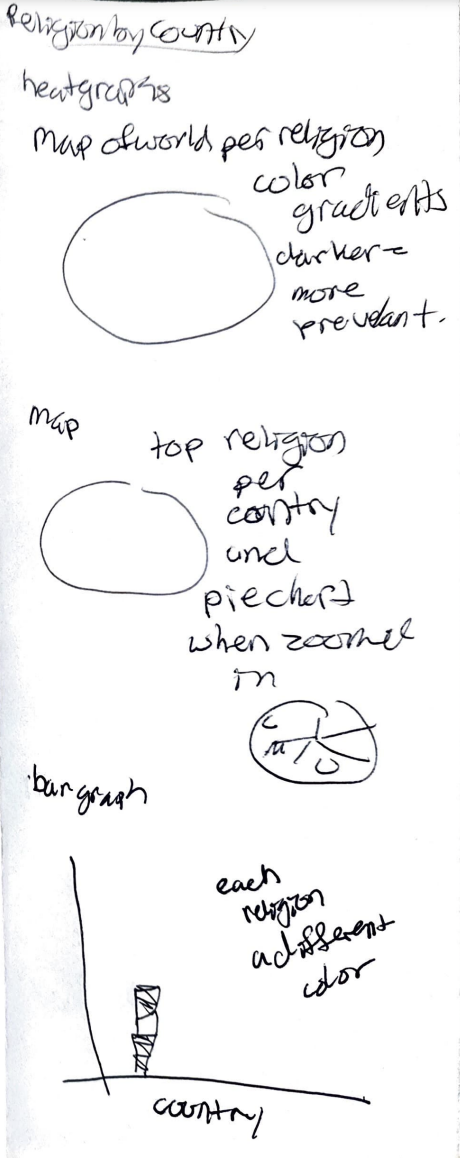 Religion by Country
heatgraphs
Map of world per religion
color
gradients
darker =
more
prevelant.
Map
top religion
per
country
and
piechart
when zoomed
in
C
M
U
bar graph
each
religion
a different
color
country